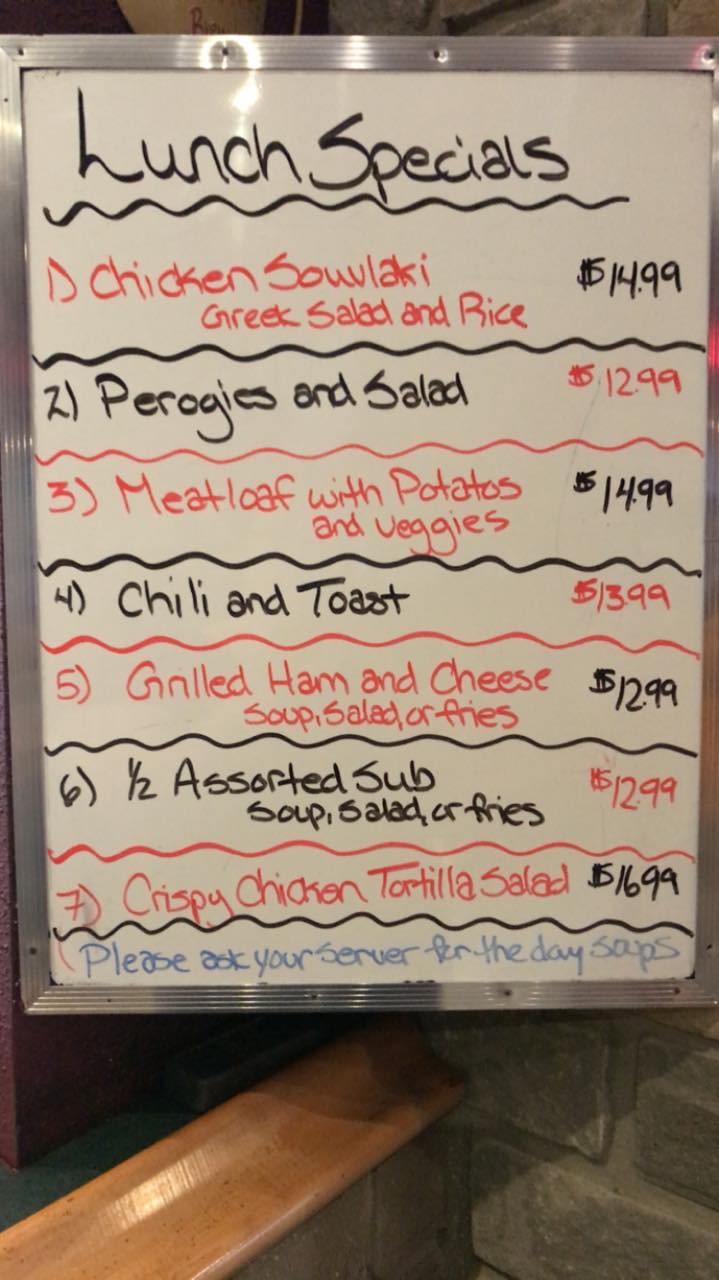 Lunch Specials
1) Chicken Souvlaki $14.99
Greek Salad and Rice
2) Perogies and Salad $12.99
3) Meatloaf with Potatos $14.99
and veggies
4) Chili and Toast $13.99
5) Grilled Ham and Cheese $12.99
Soup, Salad, or fries
6) 1/2 Assorted Sub $12.99
Soup, Salad, or fries
7) Crispy Chicken Tortilla Salad $16.99
Please ask your server for the day soups